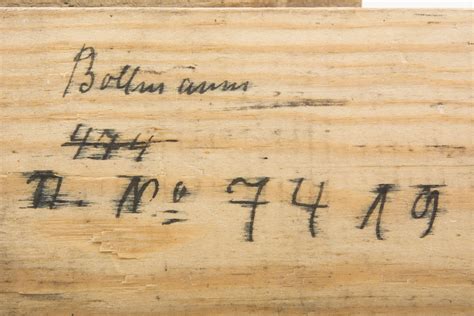 Bollmann
474
D. No 7419